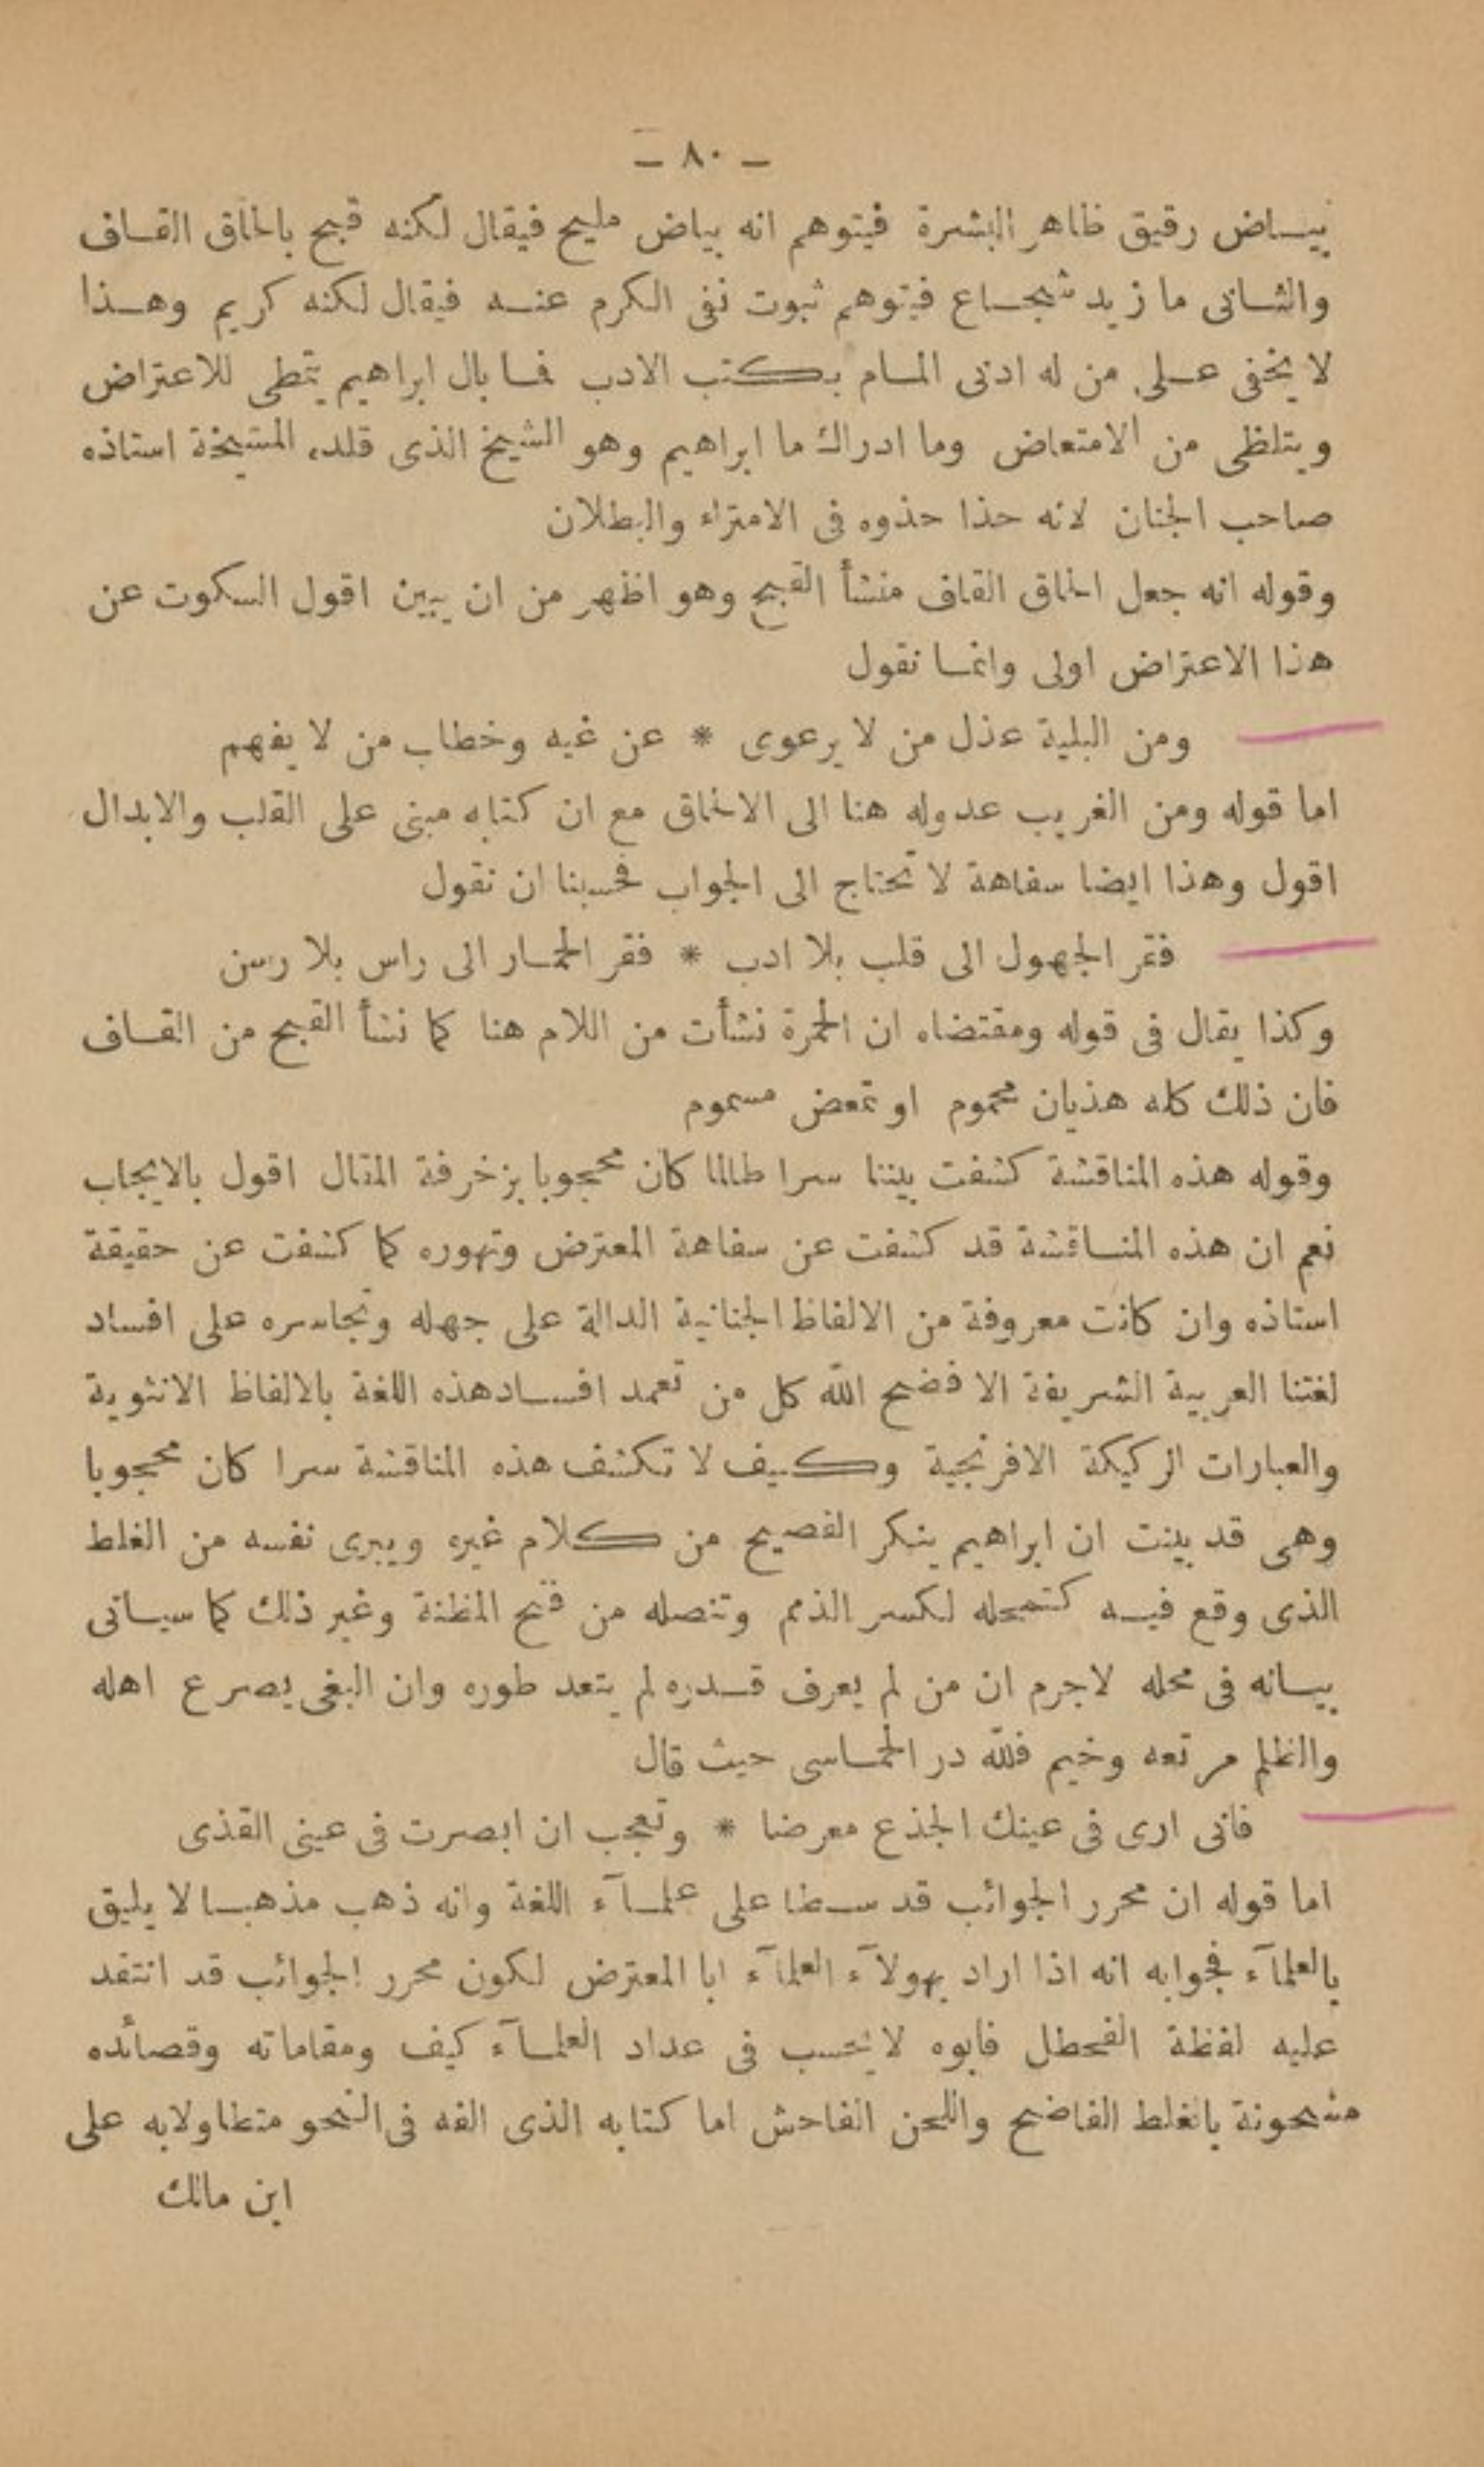 — ٨٠ —
بيساض رقيق ظاهر البشرة فيتوهم انه بياض مليح فيقال لكنه قبح بالحاق القساف
والثسانى ما زيد شجساع فيتوهم ثبوت نفى الكرم عنسه فيقال لكنه كريم وهسذا
لا يخفى عسلى من له ادنى المسام بكتب الادب فما بال ابراهيم يتمطى للاعتراض
ويتلظى من الامتعاض وما ادراك ما ابراهيم وهو الشيخ الذى قلده المشيخة استاذه
صاحب الجنان لانه حذا حذوه فى الامتراء والبطلان
وقوله انه جعل الحاق القاف منشأ القبح وهو اظهر من ان يبين اقول السكوت عن
هذا الاعتراض اولى وانما نقول
ومن البلية عذل من لا يرعوى * عن غيه وخطاب من لا يفهم
اما قوله ومن الغريب عدوله هنا الى الالحاق مع ان كتابه مبنى على القلب والابدال
اقول وهذا ايضا سفاهة لا تحتاج الى الجواب فحسبنا ان نقول
فقر الجهول الى قلب بلا ادب * فقر الحمار الى راس بلا رسن
وكذا يقال فى قوله ومقتضاه ان الحمرة نشأت من اللام هنا كما نشأ القبح من القاف
فان ذلك كله هذيان محموم او تمعض مسموم
وقوله هذه المناقشة كشفت بيننا سرا طالما كان محجوبا بزخرفة المقال اقول بالايجاب
نعم ان هذه المناقشة قد كشفت عن سفاهة المعترض وتهوره كما كشفت عن حقيقة
استاذه وان كانت معروفة من الالفاظ الجنانية الدالة على جهله وتجاسره على افساد
لغتنا العربية الشريفة الا فضح الله كل من تعمد افساد هذه اللغة بالالفاظ الانثوية
والعبارات الركيكة الافرنجية وكيف لا تكشف هذه المناقشة سرا كان محجوبا
وهى قد بينت ان ابراهيم ينكر الفصيح من كلام غيره ويبرى نفسه من الغلط
الذى وقع فيه كتمحله لكسر الذمم وتنصله من فتح المظنة وغير ذلك كما سياتى
بيانه فى محله لاجرم ان من لم يعرف قدره لم يتعد طوره وان البغى يصرع اهله
والظلم مرتعه وخيم فلله در الحماسى حيث قال
فانى ارى فى عينك الجذع معرضا * وتعجب ان ابصرت فى عينى القذى
اما قوله ان محرر الجوائب قد سطا على علمآء اللغة وانه ذهب مذهبا لا يليق
بالعلمآء فجوابه انه اذا اراد بهولآء العلمآء ابا المعترض لكون محرر الجوائب قد انتقد
عليه لفظة الفحطل فابوه لا يحسب فى عداد العلمآء كيف ومقاماته وقصائده
مشحونة بالغلط الفاضح واللحن الفاحش اما كتابه الذى الفه فى النحو متطاولا به على
ابن مالك